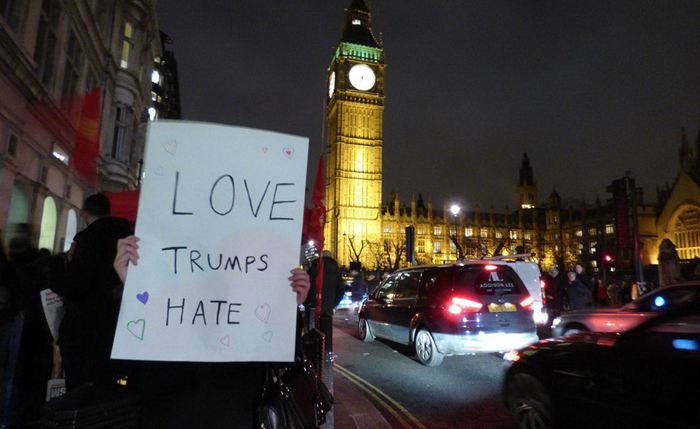 LOVE
TRUMPS
HATE
ADDISON LEE